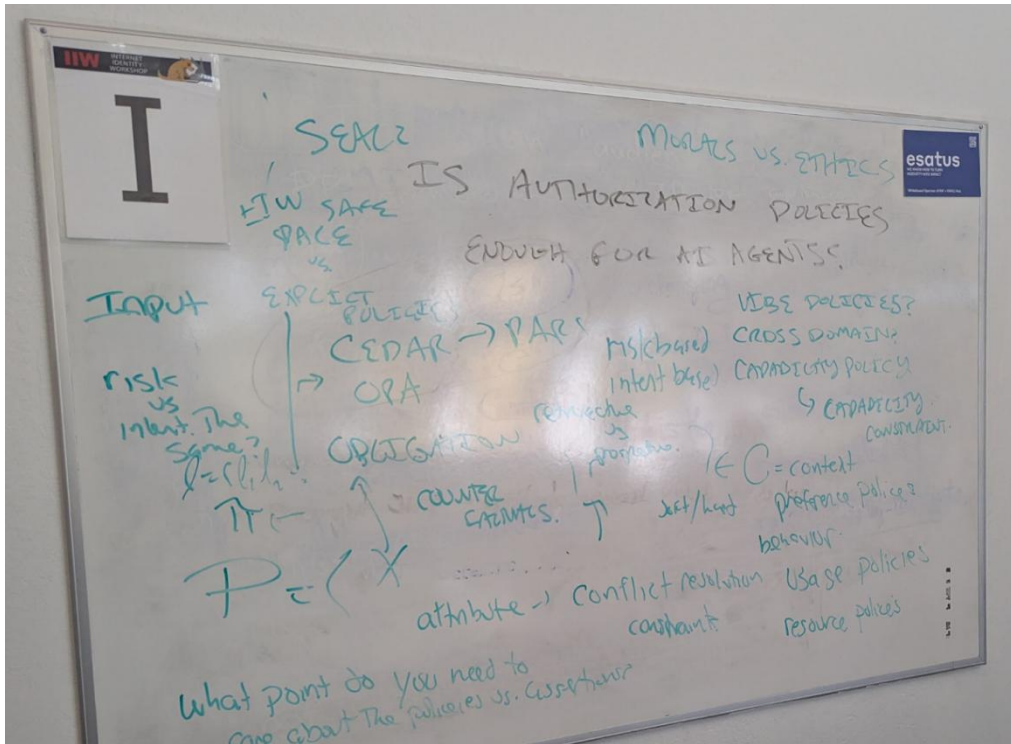 IIW INTERNET
IDENTITY
WORKSHOP
I
MORALS VS. ETHICS
esatus
IS AUTHORIZATION POLICIES
ENOUGH FOR AI AGENTS?
IIW SAFE
SPACE
vs.
INPUT
EXPLICIT
POLICIES
CEDAR → PARS
OPA
OBLIGATION
risk
vs
intent. The
same?
risk based
intent base)
retroactive
vs
VIBE POLICIES?
CROSS DOMAIN?
CAPABILITY POLICY
↳ CAPABILITY
CONSTRAINT.
π ←
COUNTER
∈ C = context
soft/hard
preference polices?
behavior.
P = ( X
attribute → conflict resolution
constraints
usage policies
resource polices
what point do you need to
care about The policies vs. assertions?